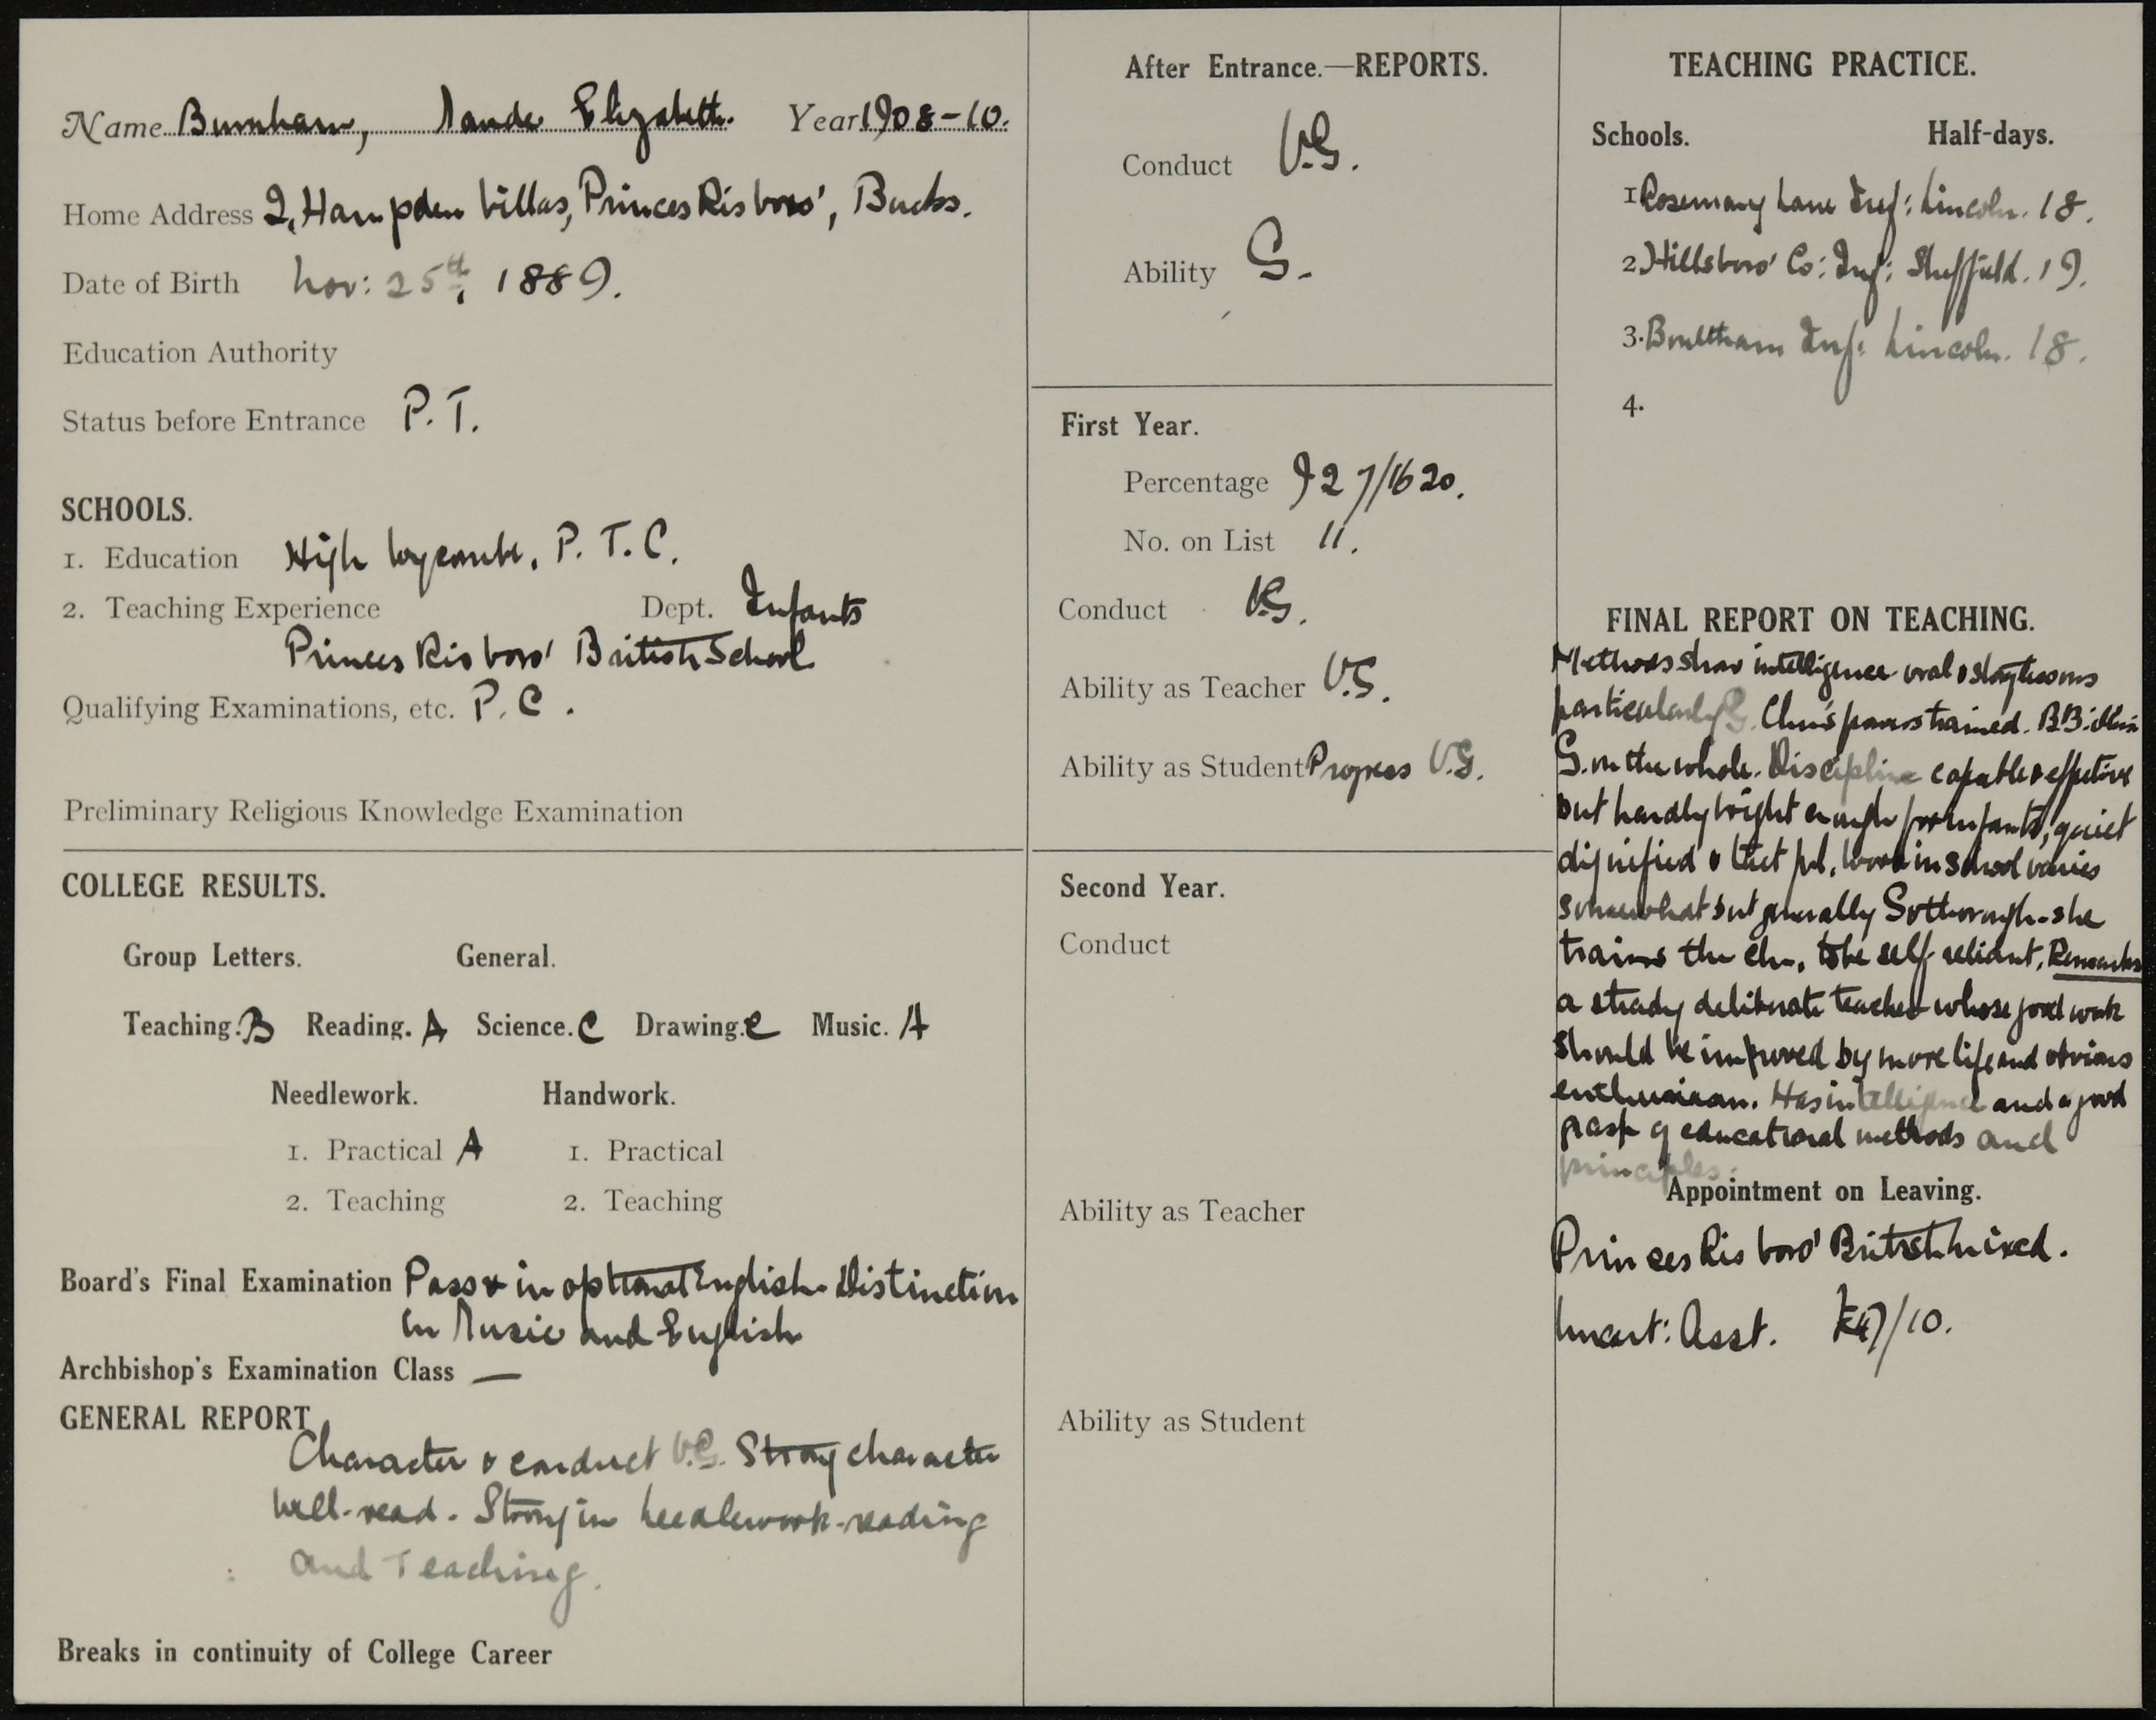 Name Burnham, Maude Elizabeth. Year 1908-10.
Home Address 2, Hampden Villas, Princes Risboro', Bucks.
Date of Birth Nov: 25th, 1889.
Education Authority
Status before Entrance P.T.
SCHOOLS.
1. Education High Wycombe, P.T.C.
2. Teaching Experience Dept. Infants
Princes Risboro' British School
Qualifying Examinations, etc. P.C.
Preliminary Religious Knowledge Examination
COLLEGE RESULTS.
Group Letters. General.
Teaching. B Reading. A Science. C Drawing. C Music. A
Needlework. Handwork.
1. Practical A 1. Practical
2. Teaching 2. Teaching
Board's Final Examination Pass & in optional English. Distinction
in Music and English
Archbishop's Examination Class —
GENERAL REPORT
Character & conduct V.G. Strong character
Well-read. Strong in needlework-reading
and Teaching.
Breaks in continuity of College Career
After Entrance.—REPORTS.
Conduct V.G.
Ability G.
First Year.
Percentage 927/1620.
No. on List 11.
Conduct V.G.
Ability as Teacher V.G.
Ability as Student Progress V.G.
Second Year.
Conduct
Ability as Teacher
Ability as Student
TEACHING PRACTICE.
Schools. Half-days.
1 Rosemary Lane Inf: Lincoln. 18.
2. Hillsboro' Co: Inf: Sheffield. 19.
3. Boultham Inf: Lincoln. 18.
4.
FINAL REPORT ON TEACHING.
Methods show intelligence - oral & story lessons
particularly G. Chn's powers trained. B.B:
G. on the whole. Discipline capable & effective
but hardly bright enough for infants, quiet
dignified & tactful. Work in school varies
somewhat but generally G & thorough - she
trains the chn. to be self-reliant. Remarks
a steady deliberate teacher whose good work
should be improved by more life and obvious
enthusiasm. Has intelligence and a good
grasp of educational methods and
principles.
Appointment on Leaving.
Princes Risboro' British Mixed.
Uncert: Asst.